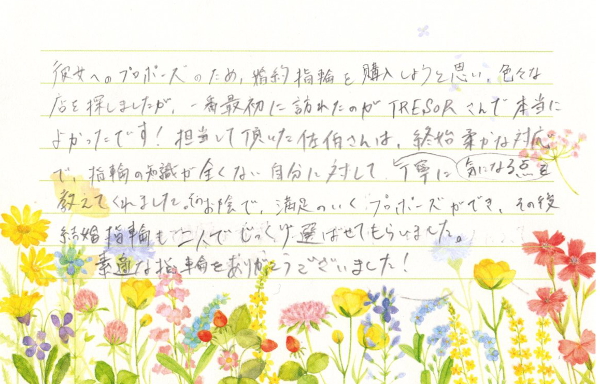 彼女へのプロポーズのため、婚約指輪を購入しようと思い、色々な
店を探しましたが、一番最初に訪れたのがTRESORさんで本当に
よかったです！担当して頂いた佐伯さんは、終始柔かな対応
で、指輪の知識が全くない自分に対して、丁寧に気になる点を
教えてくれました。そのお陰で、満足のいくプロポーズができ、その後
結婚指輪も二人でじっくり選ばせてもらいました。
素適な指輪をありがとうございました！